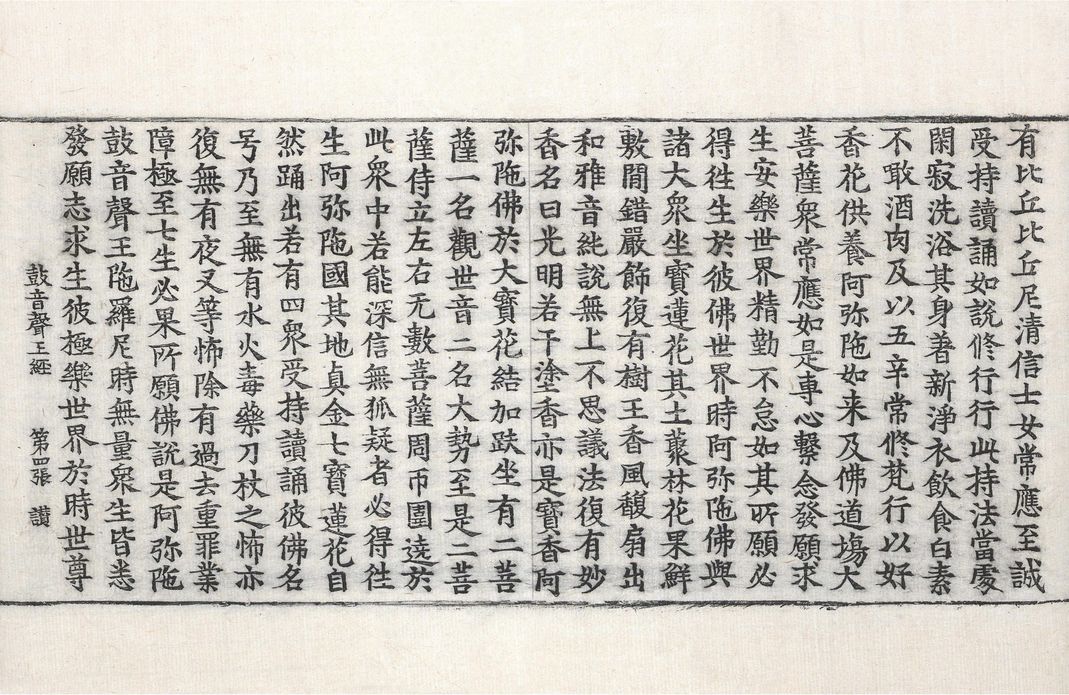 有比丘比丘尼清信士女常應至誠
受持讀誦如說修行行此持法當處
閑寂洗浴其身著新淨衣飲食白素
不敢酒肉及以五辛常修梵行以好
香花供養阿弥陁如来及佛道塲大
菩薩衆常應如是專心繫念發願求
生安樂世界精勤不怠如其所願必
得往生於彼佛世界時阿弥陁佛與
諸大衆坐寶蓮花其土藂林花果鮮
敷間錯嚴飾復有樹王香風馥扇出
和雅音純說無上不思議法復有妙
香名曰光明若干塗香亦是寶香阿
弥陁佛於大寶花結加趺坐有二菩
薩一名觀世音二名大勢至是二菩
薩侍立左右无數菩薩周帀圍遶於
此衆中若能深信無狐疑者必得往
生阿弥陁國其地貞金七寶蓮花自
然踊出若有四衆受持讀誦彼佛名
号乃至無有水火毒藥刀杖之怖亦
復無有夜叉等怖除有過去重罪業
障極至七生必果所願佛說是阿弥陁
鼓音聲王陁羅尼時無量衆生皆悉
發願志求生彼極樂世界於時世尊
鼓音聲王經 第四張 讃